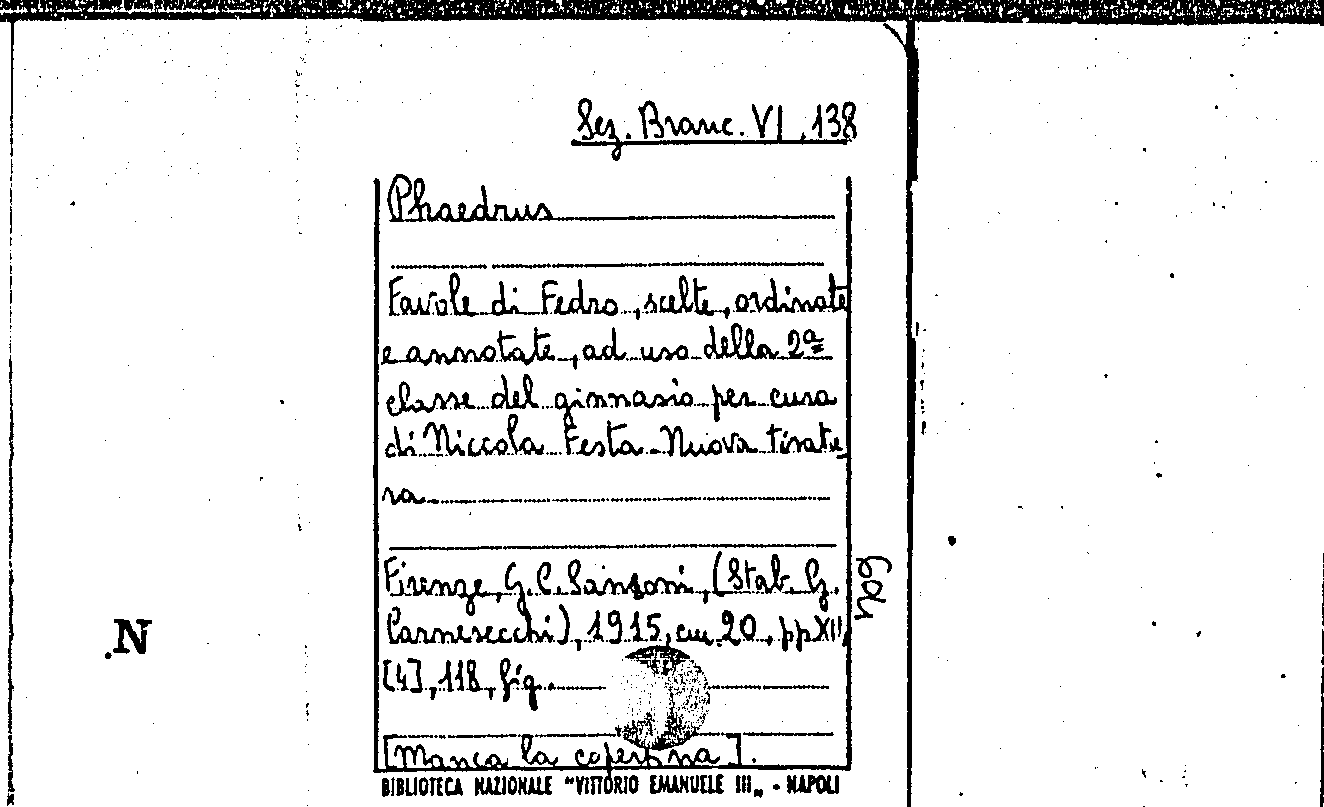 Sez. Branc. VI. 138
Phaedrus
Favole di Fedro, scelte, ordinate
e annotate, ad uso della 2ª
classe del ginnasio per cura
di Niccola Festa. Nuova tiratu
ra.
Firenze, G. C. Sansoni, (Stab. G.
Carnesecchi), 1915, cm. 20, pp XII,
[4], 118, fig.
[Manca la copertina].
BIBLIOTECA NAZIONALE "VITTORIO EMANUELE III„ - NAPOLI
N.